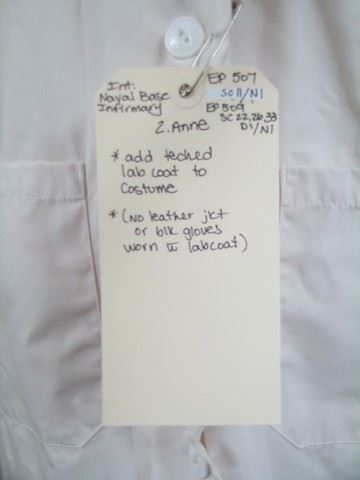 Int.
Naval Base
Infirmary
EP 507
SC 11/N1
EP 509
SC 22, 26, 33
D1/N1
2. Anne
* add teched
lab coat to
Costume
* (No leather jkt
or blk gloves
worn w labcoat)